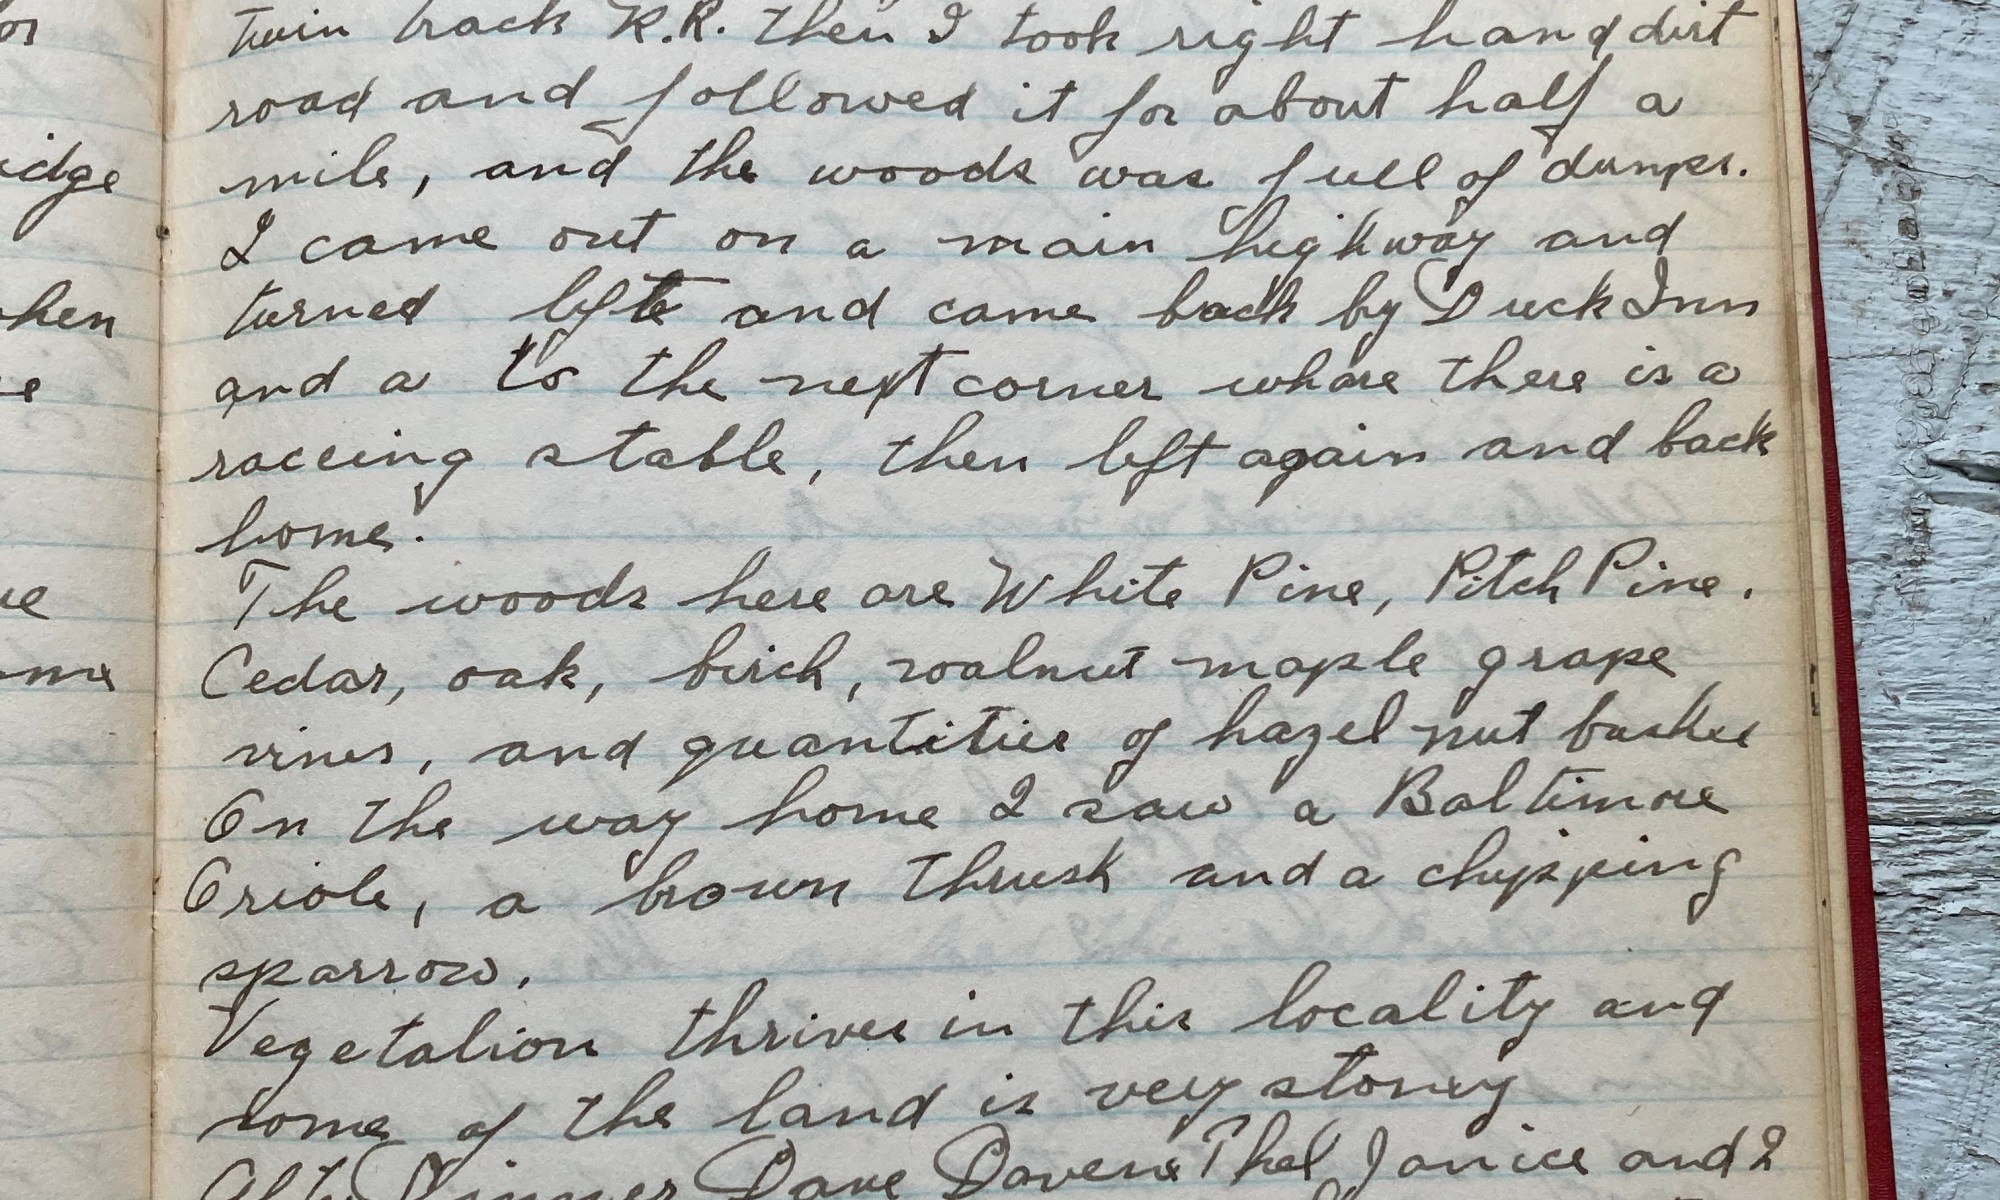 or
idge
hen
e
ue
me
twin track R.R. then I took right hand dirt
road and followed it for about half a
mile, and the woods was full of dumps.
I came out on a main highway and
turned lfte and came back by Duck Inn
and a to the next corner whare there is a
racceing stable, then left again and back
home.
The woods here are White Pine, Pitch Pine.
Cedar, oak, birch, walnut maple grape
vines, and quantities of hazel nut bushes
On the way home I saw a Baltimore
Oriole, a brown thrush and a chipping
sparrow.
Vegetation thrives in this locality and
some of the land is very stoney
Dinner Dave Thel Janice and I